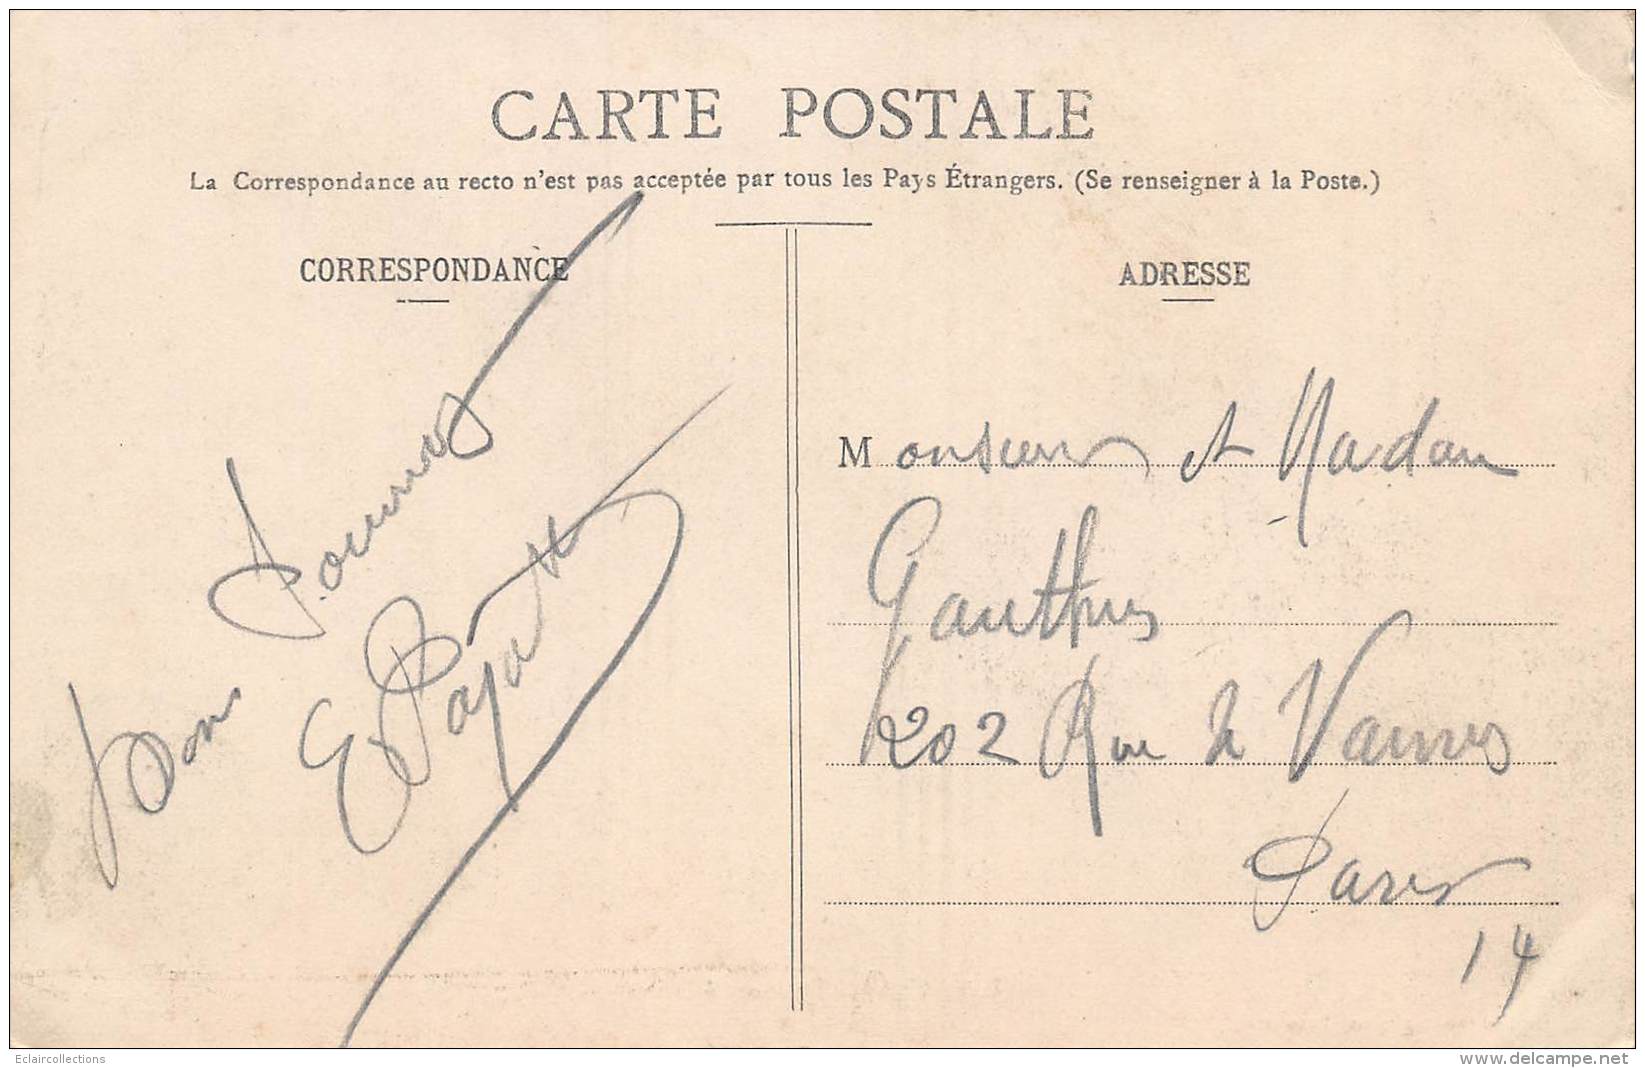 CARTE POSTALE
La Correspondance au recto n'est pas acceptée par tous les Pays Étrangers. (Se renseigner à la Poste.)
CORRESPONDANCE
Bon Souvenir
E
ADRESSE
Monsieur et Madame
202 Rue de Vanves
Paris
14
Eclaircollections
www.delcampe.net